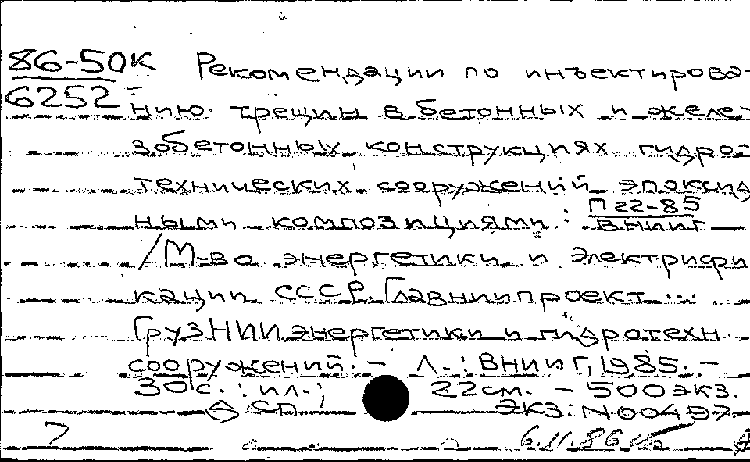 86-50к Рекомендации по инъектирова-
6252 нию трещин в бетонных и желе-
зобетонных конструкциях гидро-
технических сооружений эпоксид-
ными композициями: П 22-85
ВНИИГ
/М-во энергетики и электрифи-
кации СССР, Главниипроект...
ГрузНИИ энергетики и гидротехн.
сооружений. - Л.: ВНИИГ, 1985. -
30 с.: ил.; 22 см. - 500 экз.
СП Экз. N00497
7 6.11.86